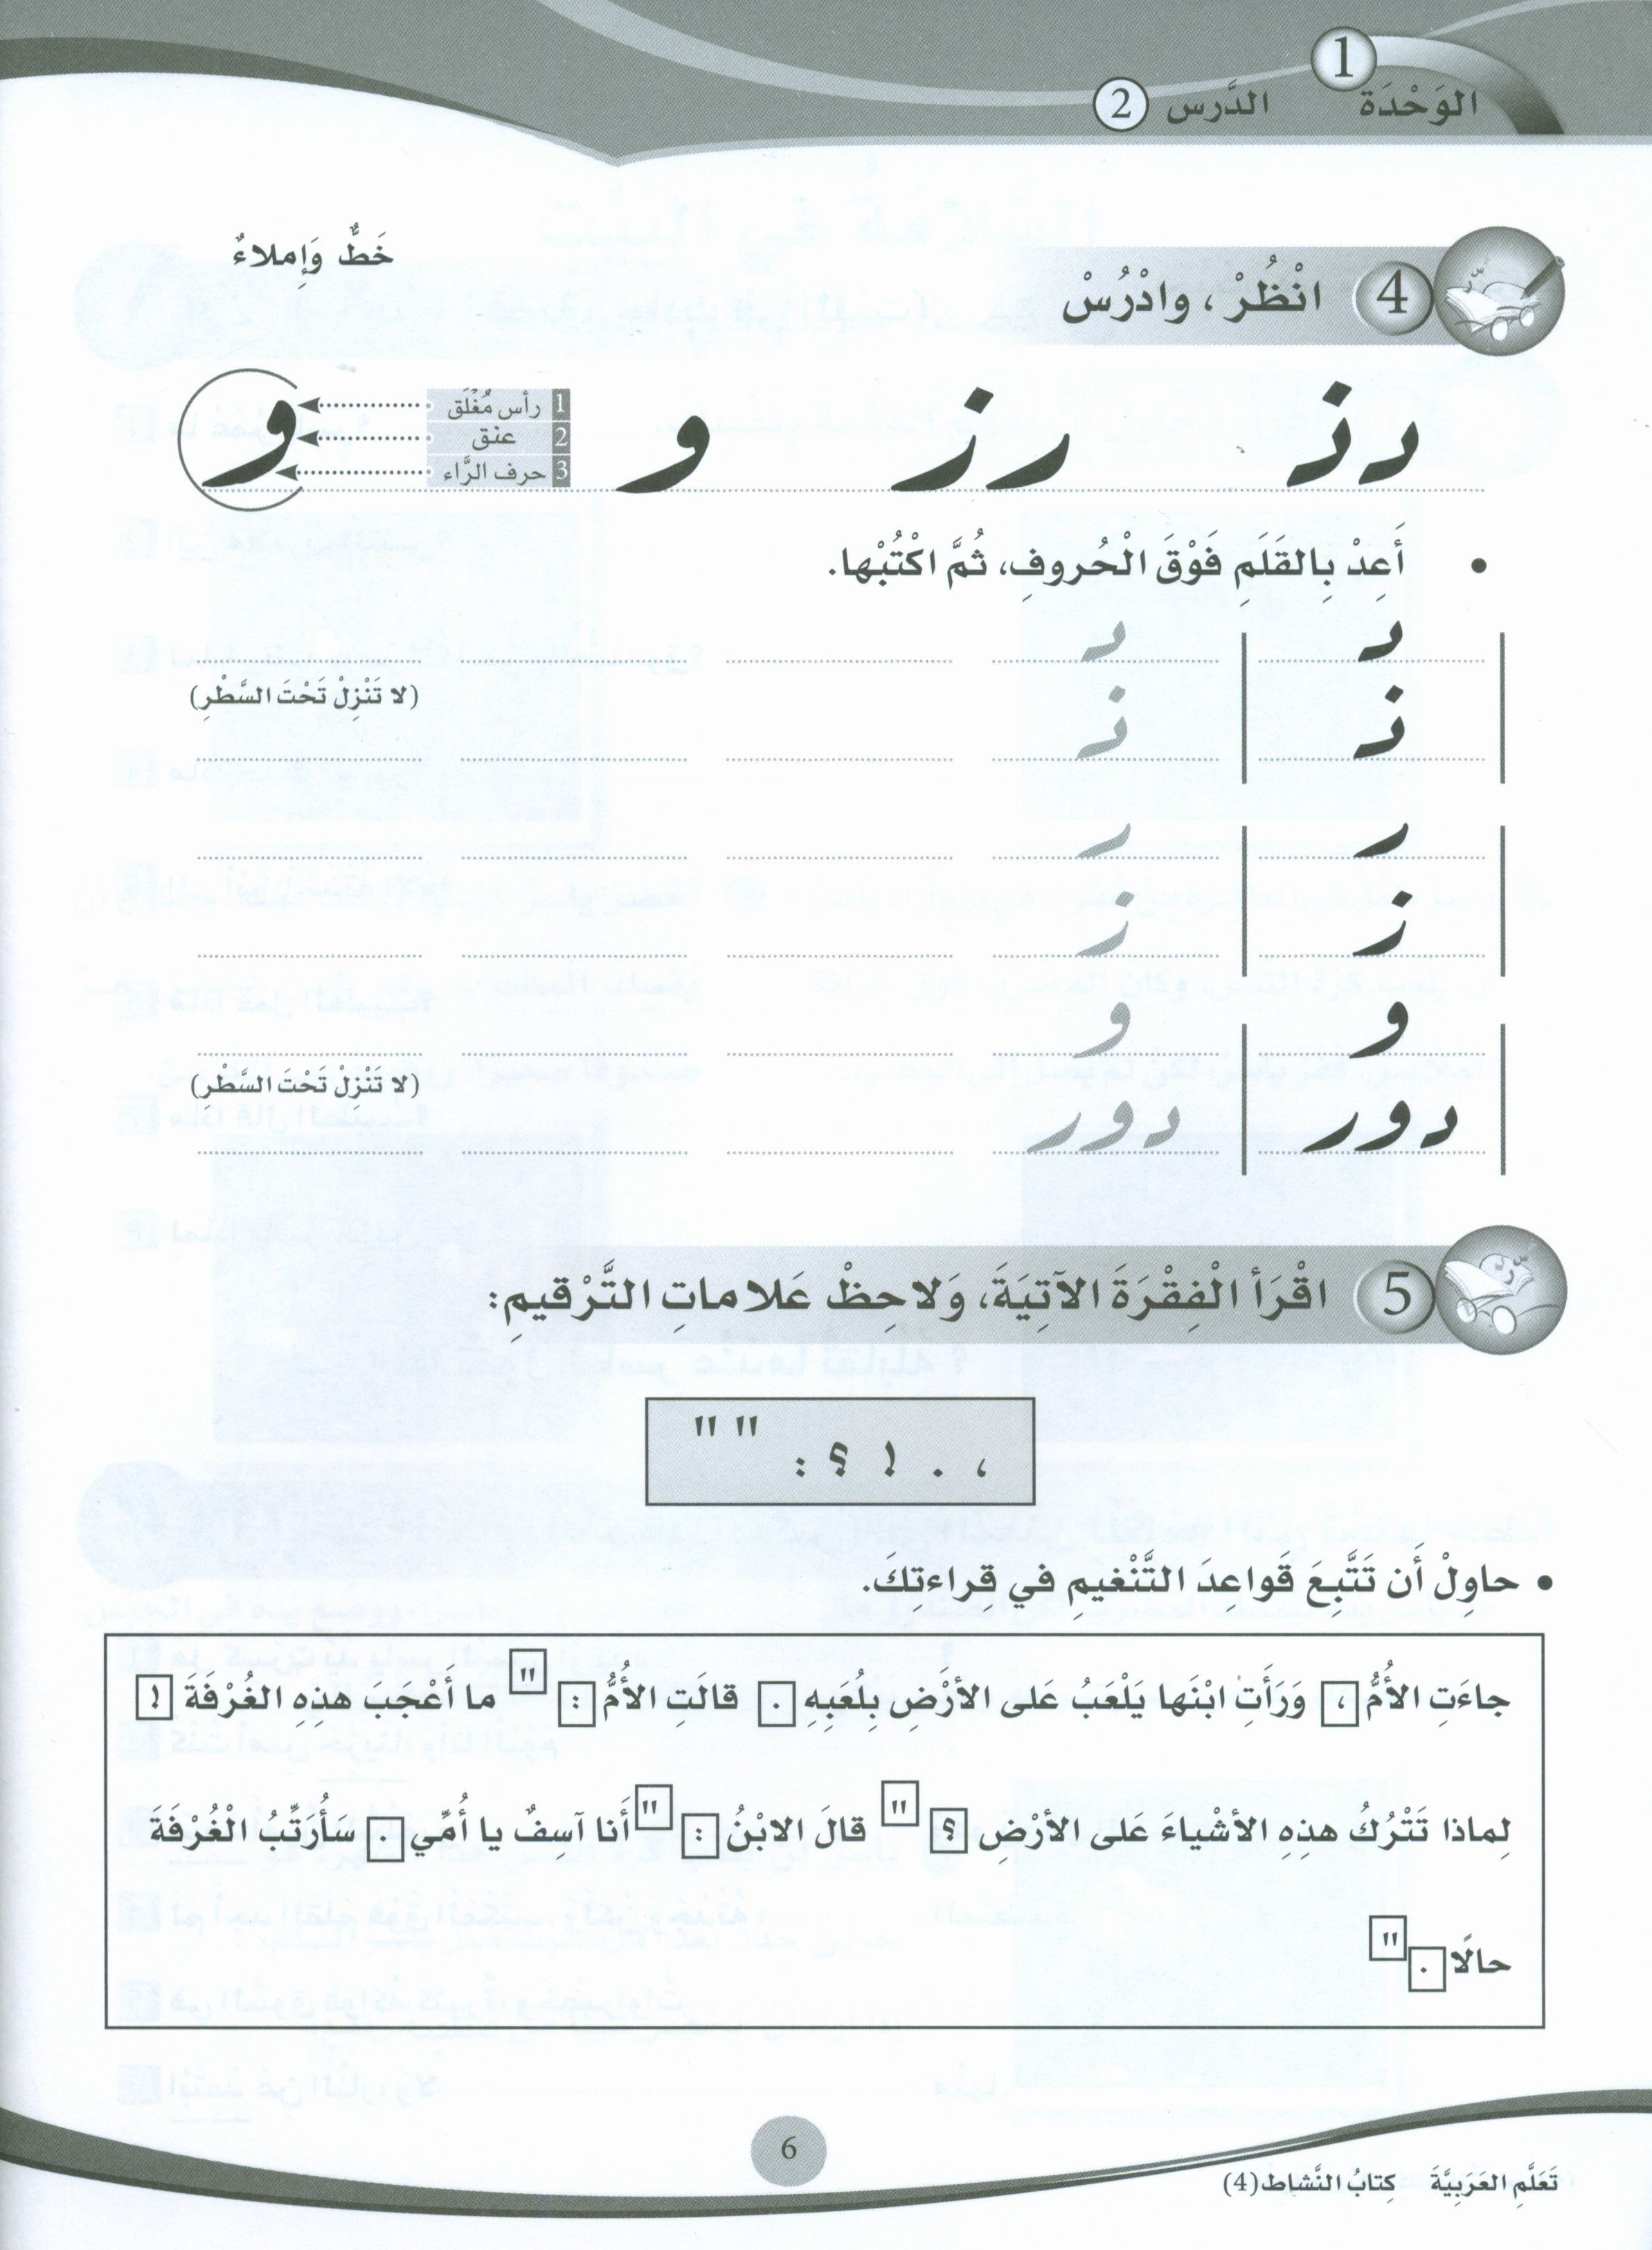 الوَحْدَة 1 الدَّرس 2
خَطٌّ وَإِملاءٌ
4 انْظُرْ ، وادْرُسْ
د ذ ر ز و
1 رأس مُغْلَق
2 عنق
3 حرف الرَّاء
و
• أَعِدْ بِالقَلَمِ فَوْقَ الْحُروفِ، ثُمَّ اكْتُبْها.
د د
(لا تَنْزِلْ تَحْتَ السَّطْرِ)
ذ ذ
ر ر
ز ز
و و
(لا تَنْزِلْ تَحْتَ السَّطْرِ)
دور دور
5 اقْرَأ الْفِقْرَةَ الآتِيَةَ، وَلاحِظْ عَلاماتِ التَّرْقيمِ:
، . ! ؟ : " "
• حاوِلْ أَن تَتَّبِعَ قَواعدَ التَّنْغيمِ في قراءتِكَ.
جاءَتِ الأُمُّ ، وَرَأَتِ ابْنَها يَلْعَبُ عَلى الأرْضِ بِلُعَبِهِ . قالَتِ الأُمُّ : " ما أَعْجَبَ هذِهِ الغُرْفَةَ !
لِماذا تَتْرُكُ هذِهِ الأشْياءَ عَلى الأرْضِ ؟ " قالَ الابْنُ : " أَنا آسِفٌ يا أُمّي . سَأُرَتِّبُ الْغُرْفَةَ
حالًا . "
6
تَعَلَّمِ العَرَبِيَّةَ كِتابُ النَّشاط (4)